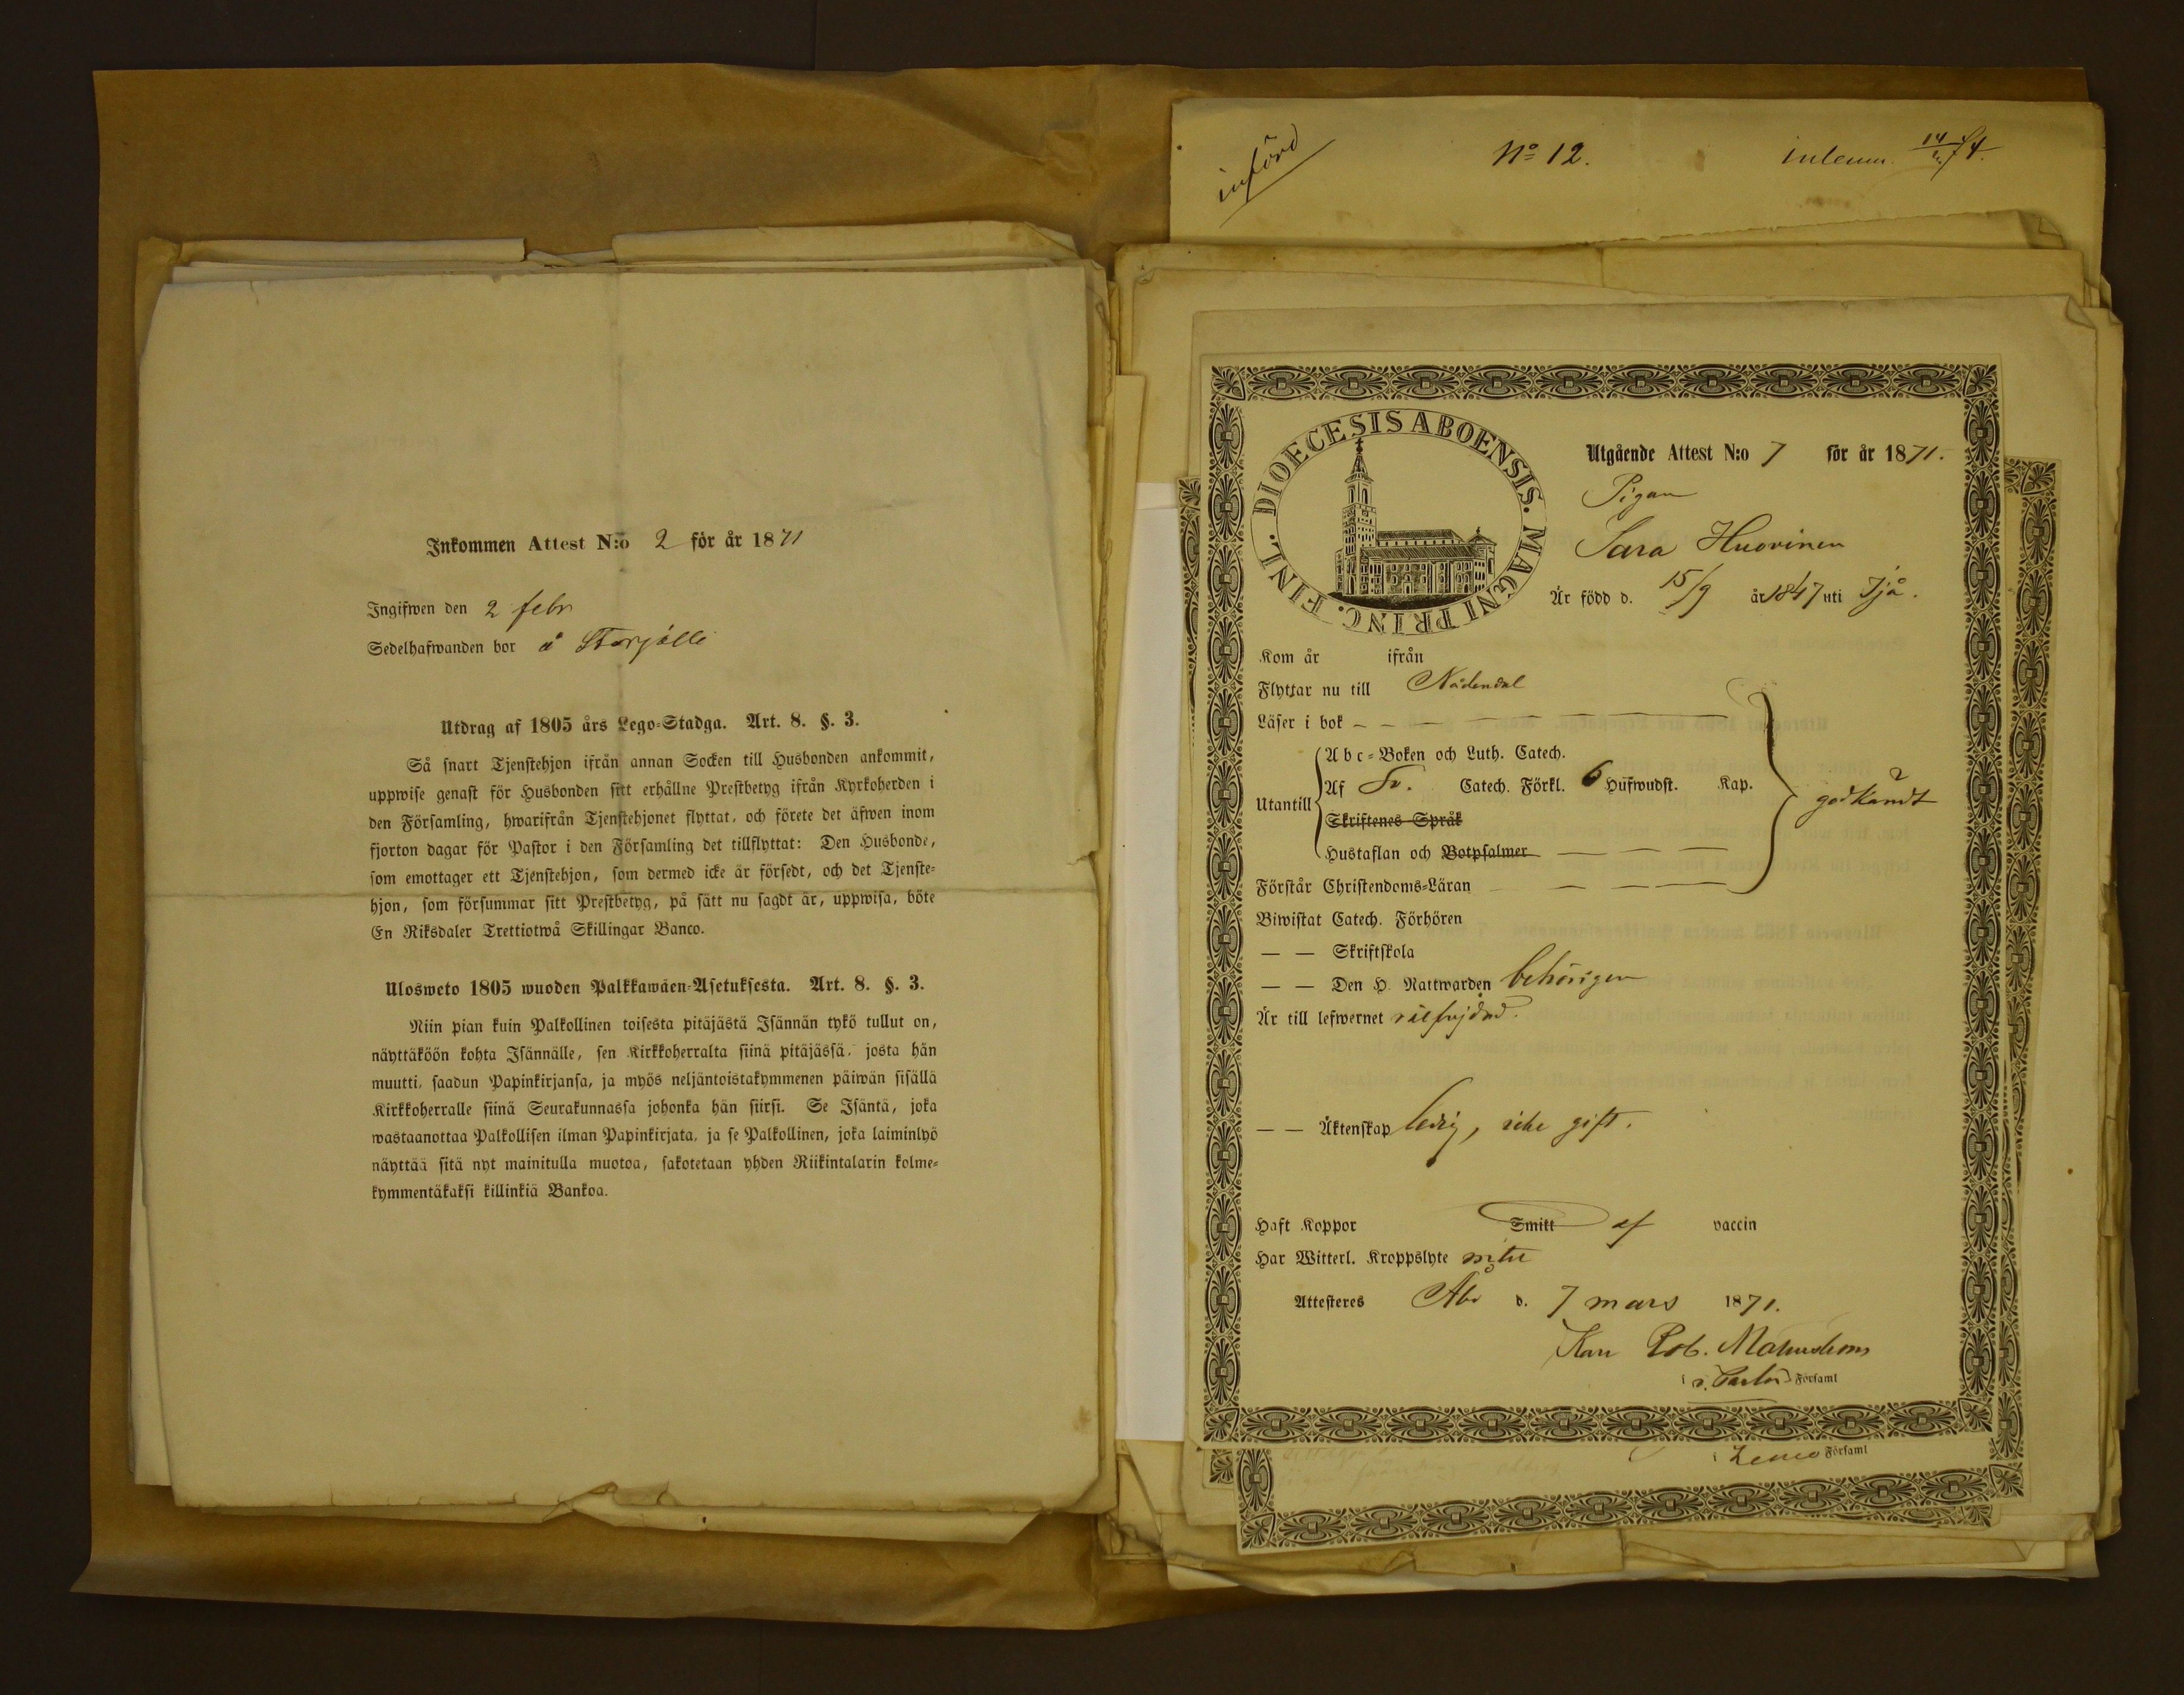 Inkommen Attest N:o 2 för år 1871
Ingifwen den 2 febr
Sedelhafwanden bor å Storjälle
Utdrag af 1805 års Lego-Stadga. Art. 8. §. 3.
Så snart Tjenstehjon ifrån annan Socken till Husbonden ankommit,
uppwise genast för Husbonden sitt erhållne Prestbetyg ifrån Kyrkoherden i
den Församling, hwarifrån Tjenstehjonet flyttat, och förete det äfwen inom
fjorton dagar för Pastor i den Församling det tillflyttat: Den Husbonde,
som emottager ett Tjenstehjon, som dermed icke är försedt, och det Tjenste-
hjon, som försummar sitt Prestbetyg, på sätt nu sagdt är, uppwisa, böte
En Riksdaler Trettiotwå Skillingar Banco.
Ulosweto 1805 wuoden Palkkawäen-Asetuksesta. Art. 8. §. 3.
Niin pian kuin Palkollinen toisesta pitäjästä Isännän tykö tullut on,
näyttäköön kohta Isännälle, sen Kirkkoherralta siinä pitäjässä, josta hän
muutti, saadun Papinkirjansa, ja myös neljäntoistakymmenen päiwän sisällä
Kirkkoherralle siinä Seurakunnassa johonka hän siirsi. Se Isäntä, joka
wastaanottaa Palkollisen ilman Papinkirjata, ja se Palkollinen, joka laiminlyö
näyttää sitä nyt mainitulla muotoa, sakotetaan yhden Riikintalarin kolme-
kymmentäkaksi killinkiä Bankoa.
införd
No 12.
DIOECESIS ABOENSIS. MAGNI PRINC. FINL.
Utgående Attest N:o 7 för år 1871.
Pigan
Sara Huovinen
Är född d. 15/9 år 1847 uti
Kom år ifrån
Flyttar nu till Nådendal
Läser i bok
Abc-Boken och Luth. Catech.
Utantill Af Sv. Catech. Förkl. 6 Hufwudst. Kap.
godkändt
Skriftenes Språk
Hustaflan och Botpsalmer
Förstår Christendoms-Läran
Biwistat Catech. Förhören
— — Skriftskola
— — Den H. Nattwarden behörigen
Är till lefwernet välfrejdad.
— — Äktenskap ledig, icke gift.
Haft Koppor Smitt af vaccin
Har Witterl. Kroppslyte intet
Attesteres Åbo d. 7 mars 1871.
Karl Rob. Malmström
i v. Pastor Församl
i Lemo Församl